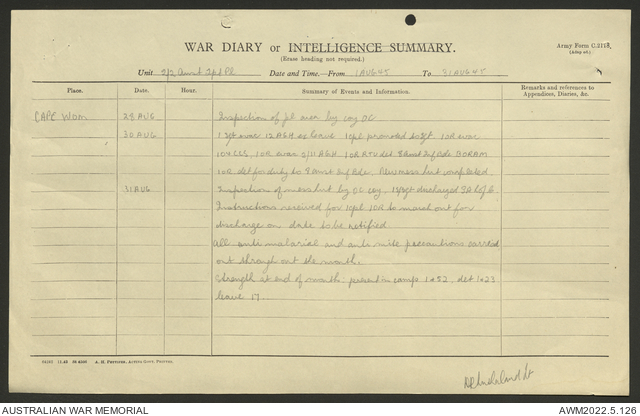 WAR DIARY or INTELLIGENCE SUMMARY.
(Erase heading not required.)
Army Form C.2118.
Unit 2/2 Date and Time.—From 1 AUG 45 To 31 AUG 45
Place. Date. Hour. Summary of Events and Information. Remarks and references to Appendices, Diaries, &c.
CAPE WOM 28 AUG Inspection of pl area by coy OC
30 AUG 1 Sgt evac 12 AGH ex leave 1 Cpl promoted to Sgt. 1 OR evac
104 CCS. 1 OR evac 2/11 AGH 1 OR RTU det 8 Aust Inf Bde BORAM
1 OR det for duty to 8 Aust Inf Bde. New mess hut completed.
31 AUG Inspection of mess hut by OC coy. 1 Sgt discharged
Instructions received for 1 Cpl 1 OR to march out for
discharge on date to be notified
All anti malarial and anti mite precautions carried
out throughout the month.
Strength at end of month: present in camp 1 & 52. det 1 & 23
leave 17.
A. H. Pettifer, Acting Govt. Printer.
AUSTRALIAN WAR MEMORIAL
AWM2022.5.126